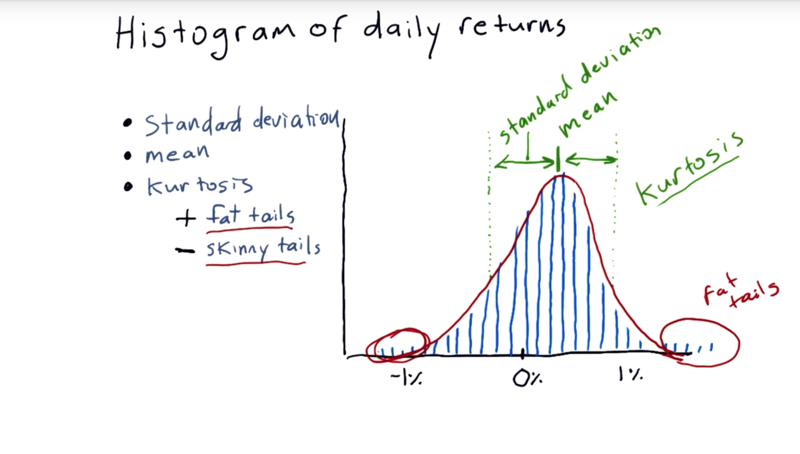 Histogram of daily returns
• Standard deviation
• mean
• Kurtosis
+ fat tails
- skinny tails
standard deviation
mean
Kurtosis
fat
tails
-1%
0%
1%